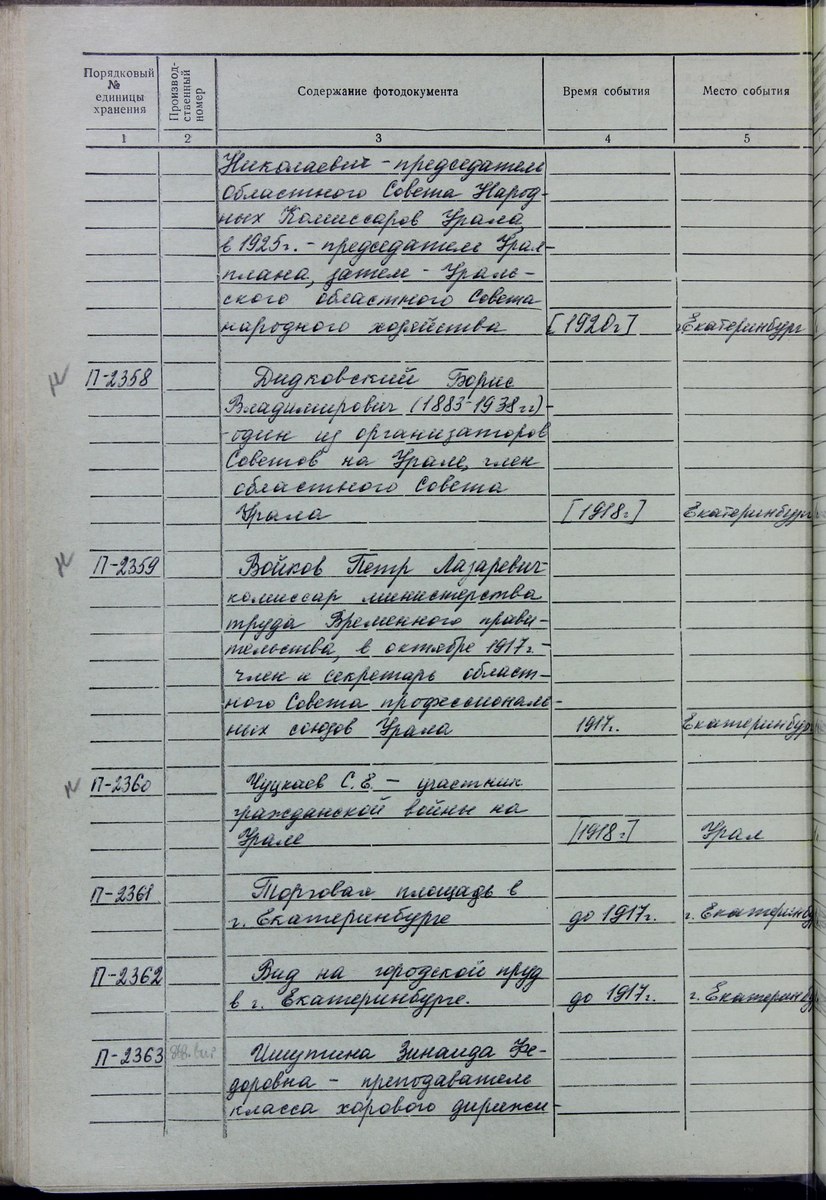 Порядковый № единицы хранения
Производ- ственный номер
Содержание фотодокумента
Время события
Место события
1 2 3 4 5
Николаевич - председатель
Областного Совета Народ-
ных Комиссаров Урала,
в 1925г. - председатель Урал-
плана, затем - Ураль-
ского областного Совета
народного хозяйства [1920г] Екатеринбург
П-2358 Дидковский Борис
Владимирович (1883-1938гг) -
- один из организаторов
Советов на Урале, член
областного Совета
Урала [1918г] Екатеринбург
П-2359 Войков Петр Лазаревич -
комиссар министерства
труда Временного прави-
тельства, в октябре 1917г. -
член и секретарь област-
ного Совета профессиональ-
ных союзов Урала 1917г. Екатеринбург
П-2360 Чуцкаев С.Е. - участник
гражданской войны на
Урале [1918г] Урал
П-2361 Торговая площадь в
г. Екатеринбурге до 1917г. г. Екатеринбу
П-2362 Вид на городской пруд
в г. Екатеринбурге. до 1917г. г. Екатеринбу
П-2363 Ишутина Зинаида Фе-
доровна - преподаватель
класса хорового дирижи-